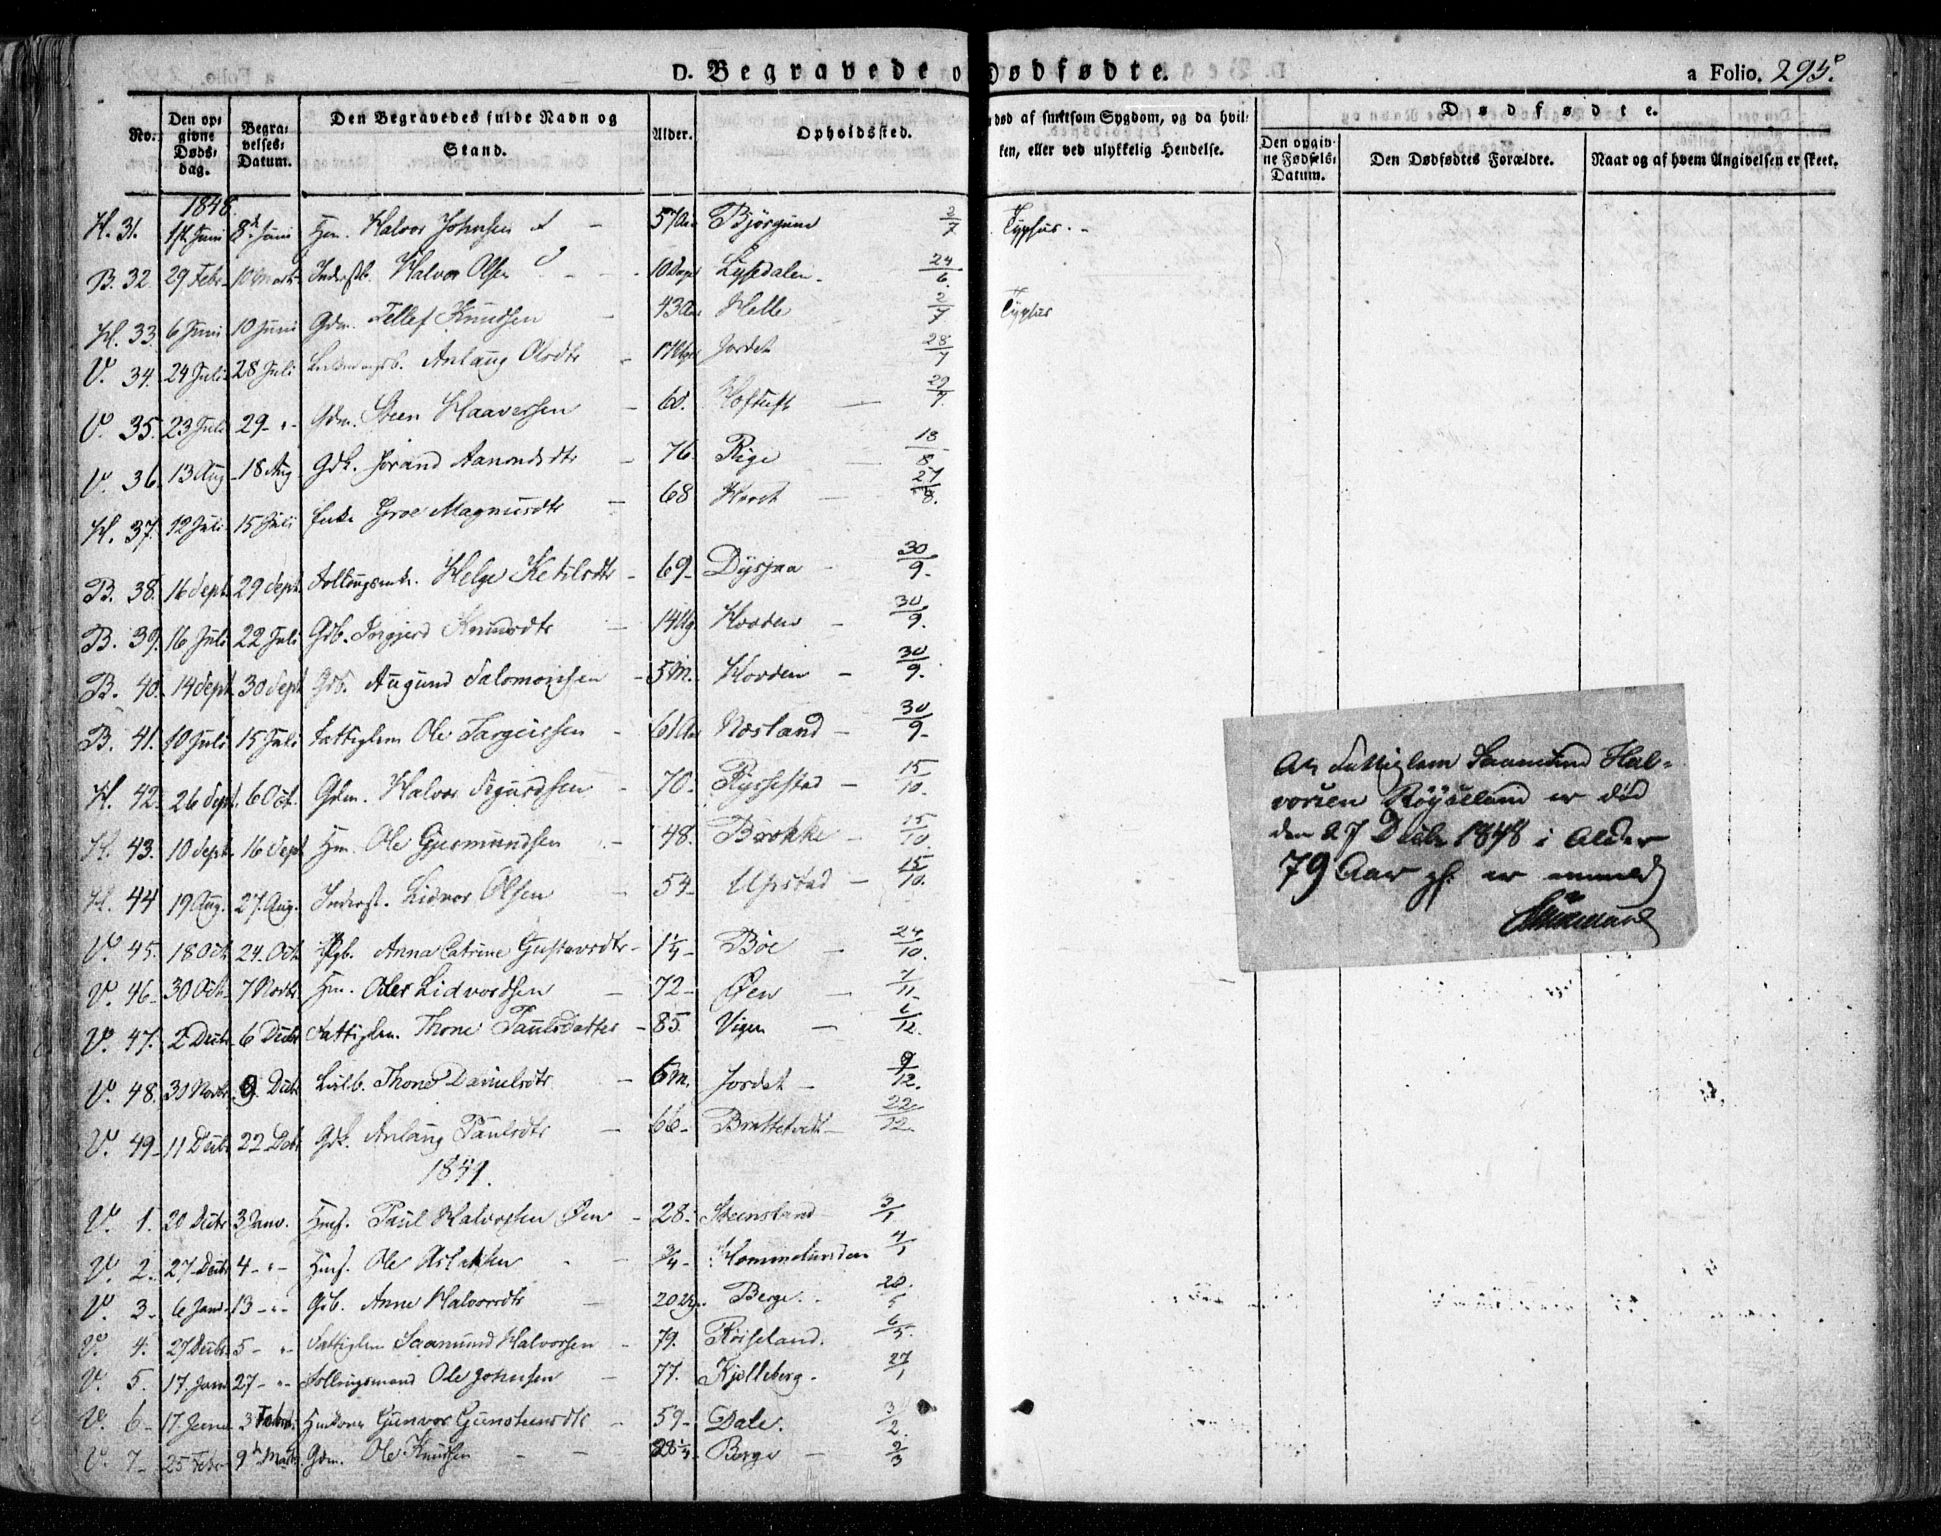 D. Begravede o Dødfødte.
a Folio. 295.
No.
Den opgivne Dødsdag.
Begravelses-Datum.
Den Begravedes fulde Navn og Stand.
Alder.
Opholdssted.
død af smitsom Sygdom, og da hvilken, eller ved ulykkelig Hendelse.
Dødfødte.
Den opgivne Fødsels-Datum.
Den Dødfødtes Forældre.
Naar og af hvem Angivelsen er skeet.
1848.
H. 31. 1st Juni 8d Juni Hm. Halvor Johnsen 57 Aar Bjørgum 2/7 Typhus.
B. 32. 29 Febr. 10 Marts Inderstb. Halvor Olsen 10 Dage Lysedalen 24/6.
H. 33. 6 Juni 10 Juni Gdm. Tellef Knudsen 43 Aar Helle 2/7 Typhus
V. 34. 24 Juli 28 Juli Anlaug Olsdtr Jordet 28/7
V. 35. 23 Juli 29 - " - Gdm. Steen Haaversen 60. Hoftuft 29/7.
V. 36. 13 Aug 18 Aug Gdk. Jorand Aanondsdtr 76. Rige 18/8
H. 37. 12 Juli 15 Juli Enke Groe Magnusdtr 68 27/8.
B. 38. 16 Sept. 29 Sept. Helge Ketilsdtr 69 - Dysjaa 30/9.
B. 39. 16 Juli 22 Juli Gdb. Ingjerd Knudsdtr 14 Ug. Hovden 30/9.
B. 40. 14 Sept. 30 Sept Gdb. Augund Salomonsen 5 M. Hovden 30/9.
B. 41. 10 Juli 15 Juli Fattiglem Ole Targeissen 61 Aar Nosland 30/9.
H. 42. 26 Sept. 6 Oct. Gdm. Halvor Sigurdsen 70. Ryssestad 15/10.
H. 43. 10 Sept. 16 Sept Hm. Ole Gjermundsen 48. Brokke 15/10.
H. 44 19 Aug. 27 Aug. Inderst. Lidvor Olsen 54 - Upstad 15/10.
V. 45. 18 Oct. 24. Oct. Anna Catrine Gustavsdtr 1 1/4 - Bøe 24/10.
V. 46 - 30 Oct. 7 Novbr Hm. Oler Lidvordsen 72 - Øen 7/11
V. 47. 2 Decbr 6 Decbr Fattiglem. Thone Paulsdatter 85. Vigen 6/12.
V. 48. 30 Novbr 9 Decbr Thone Danielsdtr 6 M. Jordet 9/12.
V. 49 - 11 Decbr 22 Decbr Gdk. Anlaug Paulsdtr 66 - Brattetvedt 22/12.
1849.
V. 1. 20 Decbr 3 Janv. Hmf. Paul Halvorsen Øen 28. Steensland 3/1
V. 2. 27 Decbr 4 - " - Hmf. Ole Aslaksen 3/4 - Hommelunden 4/1
V. 3 - 6 Janv. 13 - " - Gdb. Anne Halvorsdtr 20 Ug. Berge. 20/5
V. 4. 27 Decbr. 5 - " - Fattiglem Saamund Halvorsen 79. Røiseland. 6/5.
V. 5. 17. Janv. 27 - " - Follougsmand Ole Johnsen 77. Kjelleberg. 27/1
V. 6 - 17 Janv. 3 Febr. Huskone Gunvor Gunsteinsdtr 59 - Dale. 3/2.
V. 7 - 25 Febr. 9d Marts Gdm. Ole Knudsen 28 1/4 Berge 9/3
At Fattiglem Saamund Hal-
vorsen Røyseland er død
den 27 Decbr 1848 i Alder
79 Aar er anmeldt